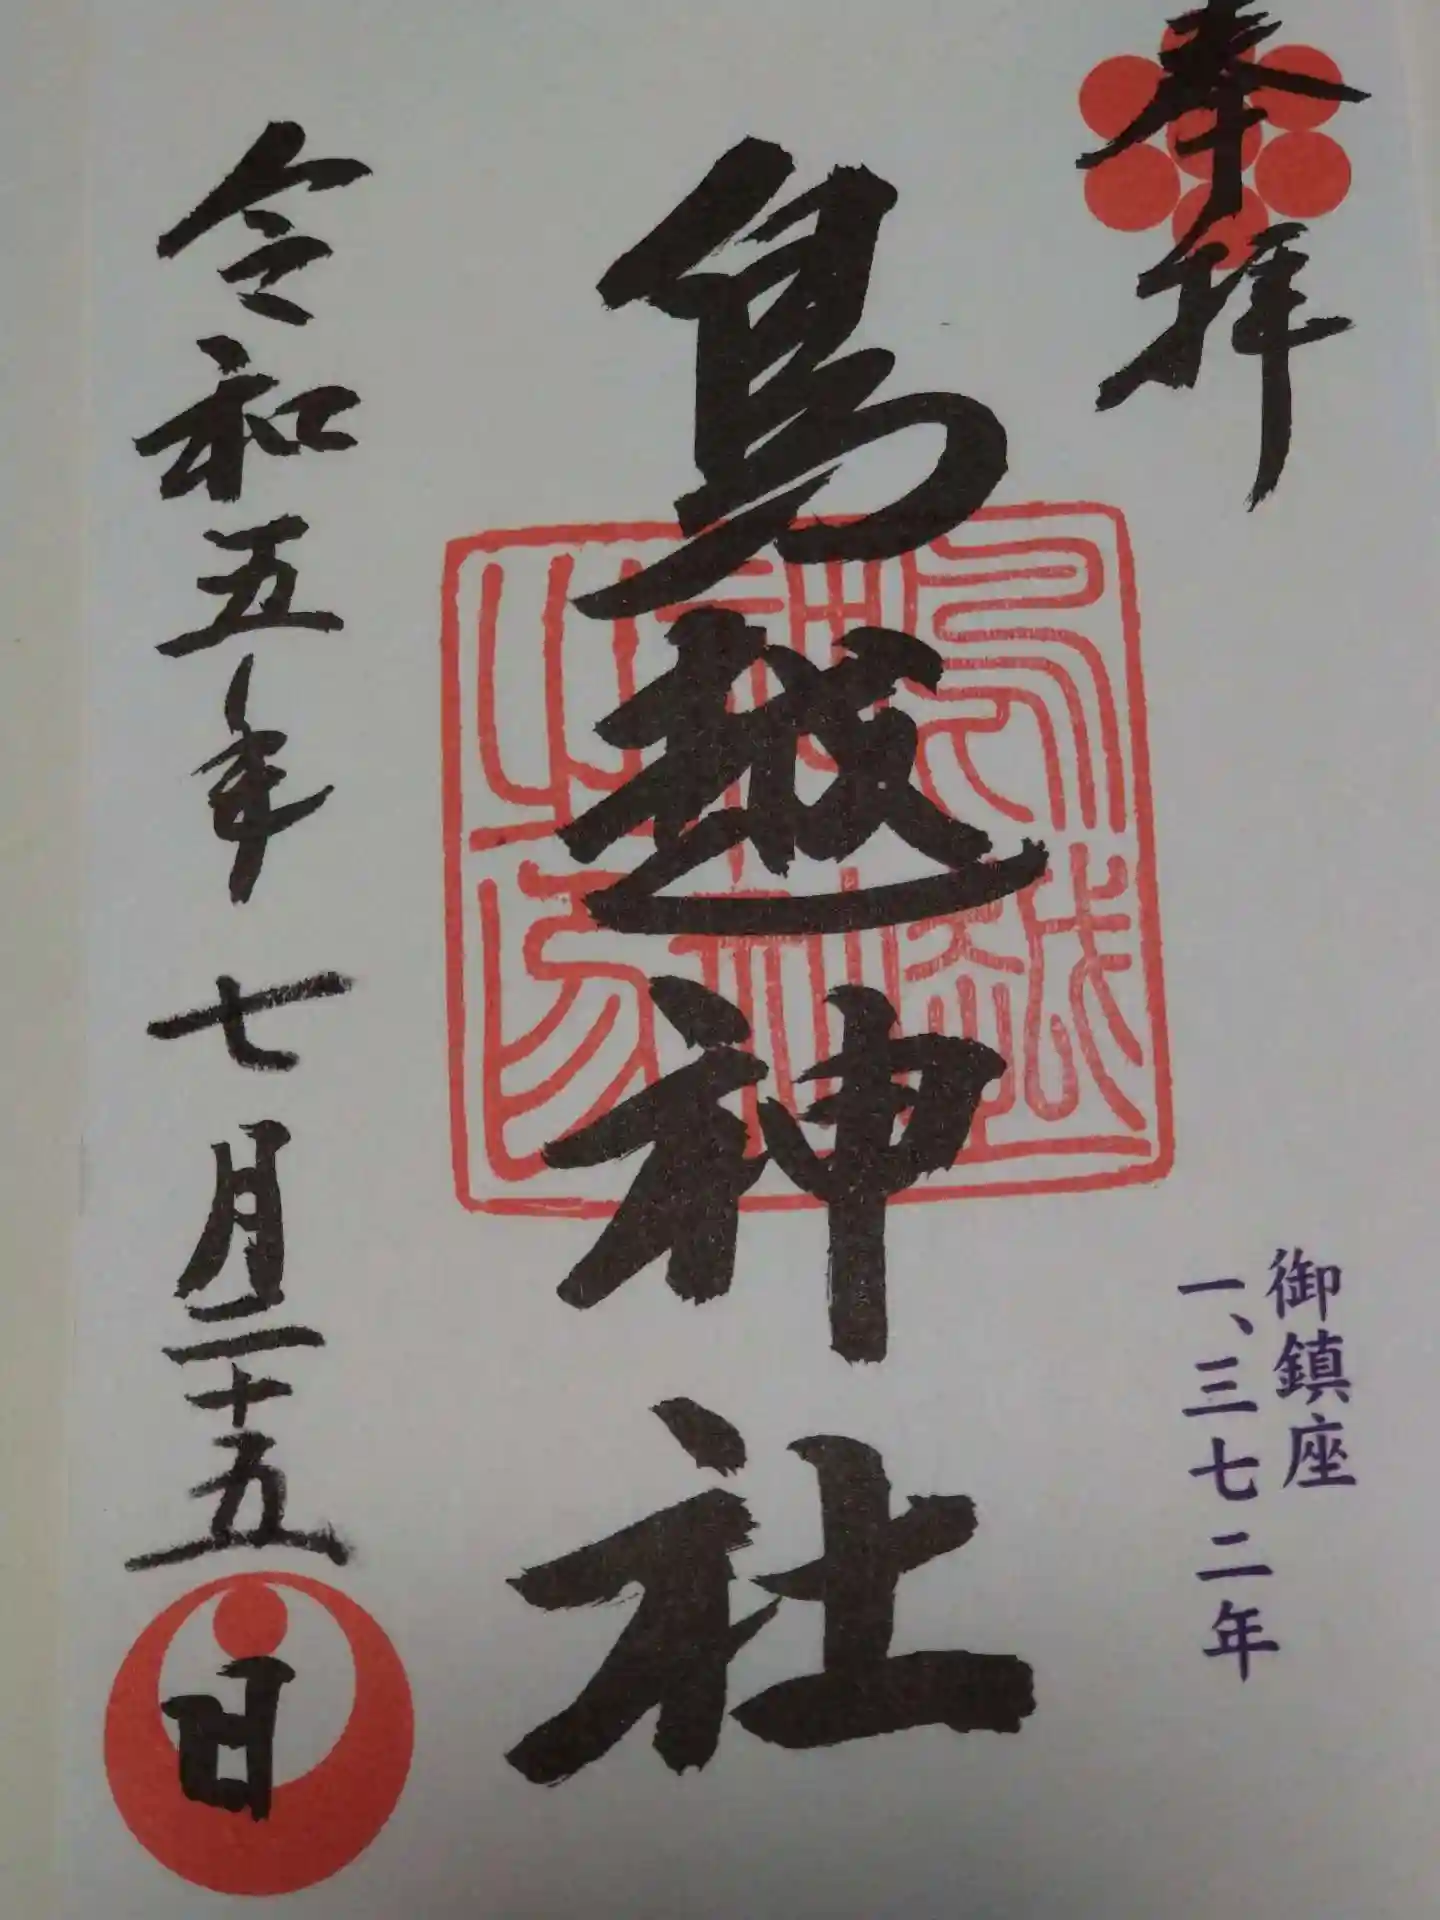 奉拝
御鎮座
一、三七二年
鳥越神社
鳥越神社之印
令和五年七月二十五日